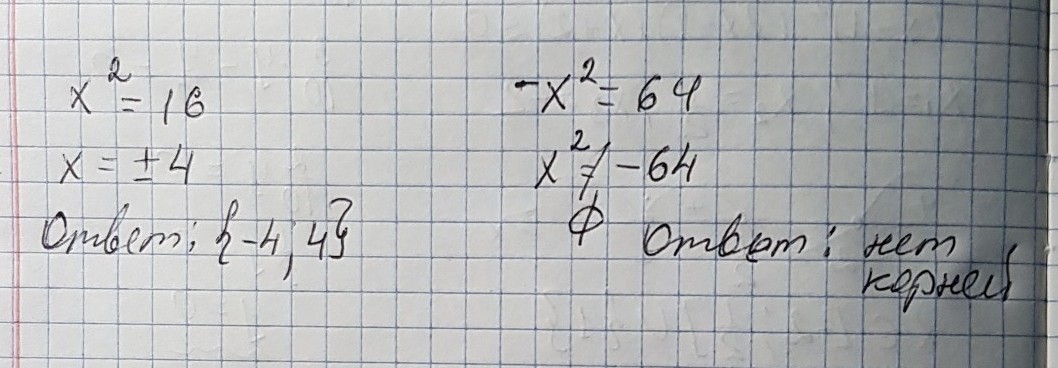 x² = 16
x = ±4
Ответ: {-4; 4}
-x² = 64
x² ≠ -64
∅ Ответ: нет
корней